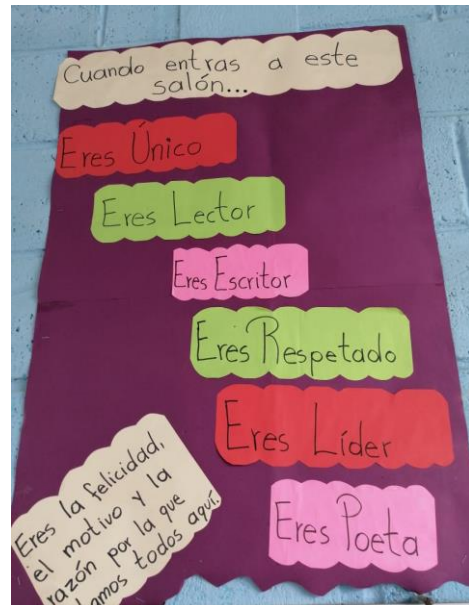 Cuando entras a este
salón...
Eres Único
Eres Lector
Eres Escritor
Eres Respetado
Eres Líder
Eres Poeta
Eres la felicidad,
el motivo y la
razón por la que
todos aquí.